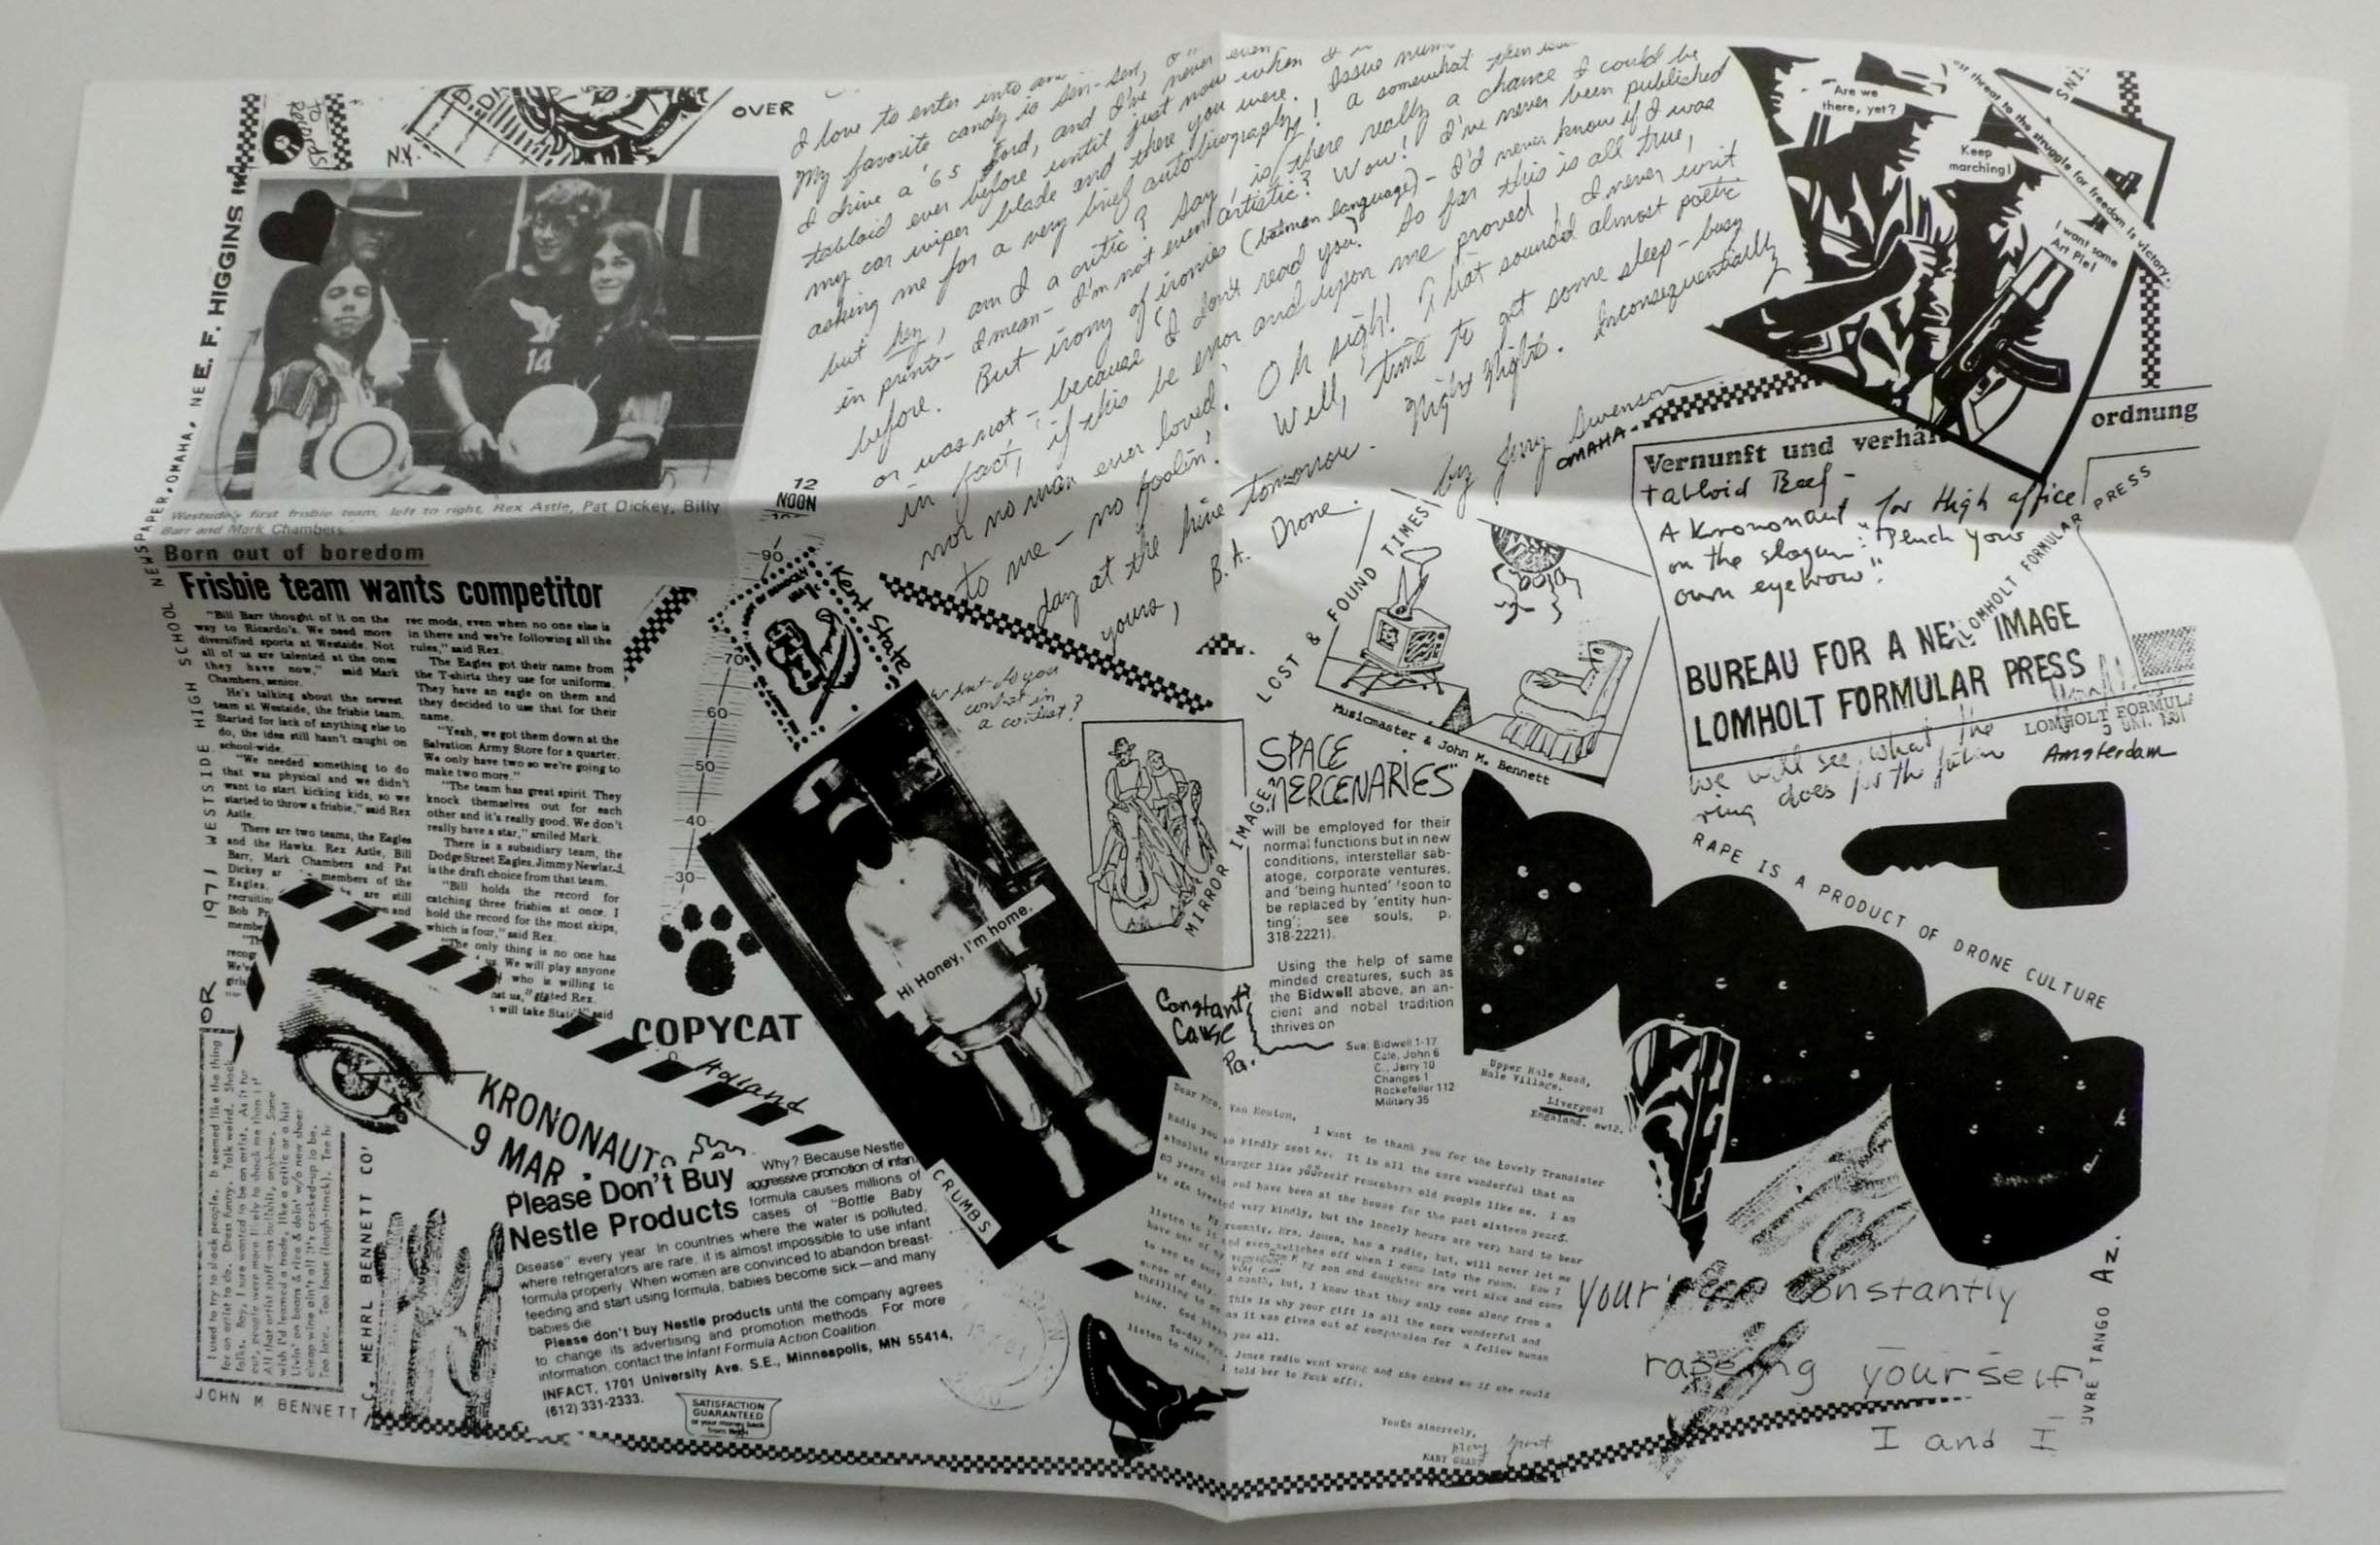 TO
RECORDS
N.Y.
OVER
E. F. HIGGINS III
1971 WESTSIDE HIGH SCHOOL NEWSPAPER, OMAHA, NE
14
Westside's first frisbie team, left to right, Rex Astle, Pat Dickey, Billy
Barr and Mark Chambers.
Born out of boredom
Frisbie team wants competitor
"Bill Barr thought of it on the
way to Ricardo's. We need more
diversified sports at Westside. Not
all of us are talented at the ones
they have now," said Mark
Chambers, senior.
He's talking about the newest
team at Westside, the frisbie team.
Started for lack of anything else to
do, the idea still hasn't caught on
school-wide.
"We needed something to do
that was physical and we didn't
want to start kicking kids, so we
started to throw a frisbie," said Rex
Astle.
There are two teams, the Eagles
and the Hawks. Rex Astle, Bill
Barr, Mark Chambers and Pat
Dickey ar members of the
Eagles. are still
recruitin and
Bob Pr
membe
"Th
recog
We'r
girls
rec mods, even when no one else is
in there and we're following all the
rules," said Rex.
The Eagles got their name from
the T-shirts they use for uniforms.
They have an eagle on them and
they decided to use that for their
name.
"Yeah, we got them down at the
Salvation Army Store for a quarter.
We only have two so we're going to
make two more."
"The team has great spirit. They
knock themselves out for each
other and it's really good. We don't
really have a star," smiled Mark.
There is a subsidiary team, the
Dodge Street Eagles. Jimmy Newland
is the draft choice from that team.
"Bill holds the record for
catching three frisbies at once. I
hold the record for the most skips,
which is four," said Rex.
"The only thing is no one has
us. We will play anyone
who is willing to
at us," stated Rex.
will take State" said
I love to enter into
My favorite candy is sen-sen,
I drive a '65 Ford, and I've never even
tabloid ever before until just now when
my car wiper blade and there you were. Issue
asking me for a very brief autobiography! a somewhat
but hey, am I a critic? Say, is there really a chance I could be
in print - I mean - I'm not even artistic? Wow! I've never been published
before. But irony of ironies (batman language) - I'd never know if I was
or was not - because "I don't read you." So far this is all true,
in fact, if this be error and upon me proved, I never writ
nor no man ever loved. Oh sigh! That sounded almost poetic
to me - no foolin'. Well, time to get some sleep - busy
day at the hive tomorrow. Night Night. Inconsequentially
yours, B.A. Drone. by Jerry Swenson
OMAHA
Are we
there, yet?
Keep
marching!
I want some
Art Pie!
threat to the struggle for freedom is victory.
SNI
ordnung
Vernunft und verhäl
tabloid Beef -
A Krononaut for High office
on the slogan: "Pluck your
own eyebrow".
LOMHOLT FORMULAR PRESS
BUREAU FOR A NEW IMAGE
LOMHOLT FORMULAR PRESS
LOMHOLT FORMULA
Amsterdam
We will see what the
ring does for the future
12
NOON
90
70
60
50
40
30
Kent State
what do you
want in
a contest?
LOST & FOUND TIMES
Musicmaster & John M. Bennett
MIRROR IMAGE
SPACE
MERCENARIES"
will be employed for their
normal functions but in new
conditions, interstellar sab-
atoge, corporate ventures,
and 'being hunted' (soon to
be replaced by 'entity hun-
ting'; see souls, p.
318-2221).
Using the help of same
minded creatures, such as
the Bidwell above, an an-
cient and nobel tradition
thrives on
See: Bidwell 1-17
Cale, John 6
C., Jerry 10
Changes 1
Rockefeller 112
Military 35
Constant
Cause
Pa.
Hi Honey, I'm home.
CRUMBS
COPYCAT
Holland
RAPE IS A PRODUCT OF DRONE CULTURE
Upper Hale Road,
Hale Village.
Liverpool
Engaland.
Dear Mrs. Van Houten,
I want to thank you for the Lovely Transister
Radio you so kindly sent me. It is all the more wonderful that an
absolute stranger like yourself remembers old people like me. I am
years old and have been at the house for the past sixteen years.
We are treated very kindly, but the lonely hours are very hard to bear
My roommate, Mrs. Jones, has a radio, but, will never let me
listen to it and even switches off when I come into the room. Now I
have one of my very own. My son and daughter are vert nice and come
to see me once a month, but, I know that they only come along from a
sense of duty. This is why your gift is all the more wonderful and
thrilling to me as it was given out of compassion for a fellow human
being. God bless you all.
To-day Mrs. Jones radio went wrong and she asked me if she could
listen to mine, I told her to Fuck off.
Youŕs sincerely,
MARY GRANT
your constantly
rapeing yourself
I and I
JVRE TANGO AZ.
OR
I used to try to shock people. It seemed like the thing
for an artist to do. Dress funny. Talk weird. Shock
folks. Boy, I sure wanted to be an artist. As it tur
out, people were more likely to shock me than I
All that artist stuff was bullshit, anyhow. Some
wish I'd learned a trade, like a critic or a hist
Livin' on beans & rice & doin' w/o new shoe
cheap wine ain't all it's cracked-up to be.
Too late. Too loose (laugh-track). Tee he
JOHN M BENNETT
C. MEHRL BENNETT CO'
KRONONAUT
9 MAR
Please Don't Buy
Nestle Products
Why? Because Nestle
aggressive promotion of infan
formula causes millions of
cases of "Bottle Baby
Disease" every year. In countries where the water is polluted,
where refrigerators are rare, it is almost impossible to use infant
formula properly. When women are convinced to abandon breast-
feeding and start using formula, babies become sick—and many
babies die.
Please don't buy Nestle products until the company agrees
to change its advertising and promotion methods. For more
information, contact the Infant Formula Action Coalition.
INFACT, 1701 University Ave. S.E., Minneapolis, MN 55414,
(612) 331-2333.
SATISFACTION
GUARANTEED
or your money back